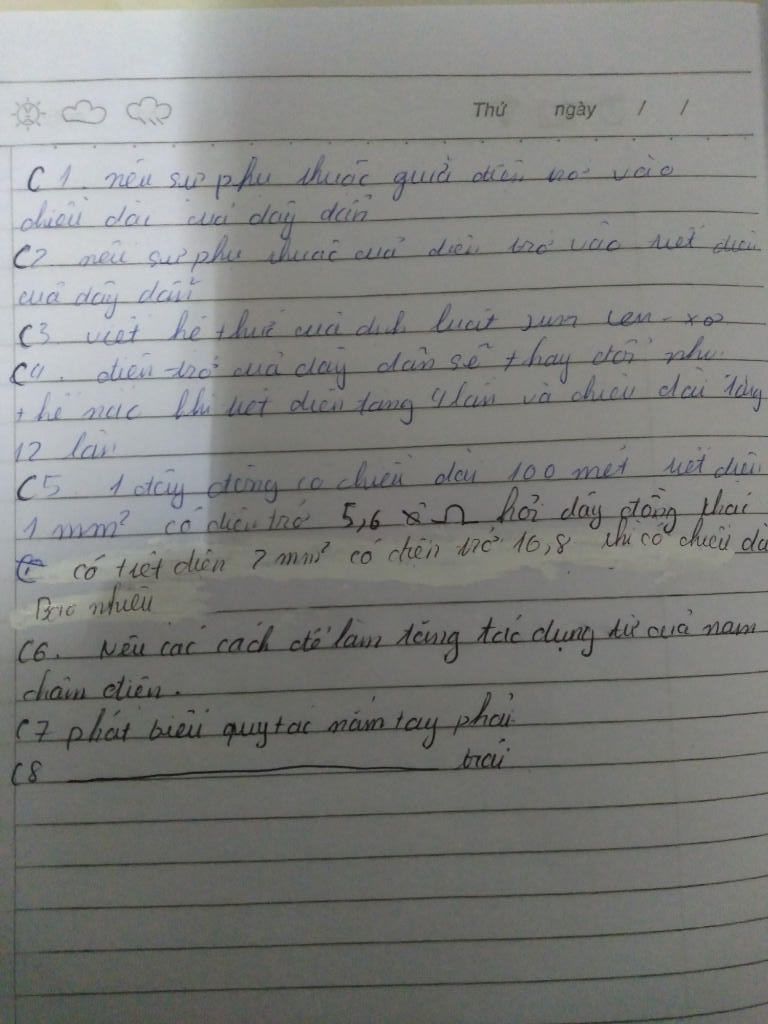 Thứ ngày / /
C1. nêu sự phụ thuộc guả điện trở vào
chiều dài của dây dẫn
C2 nêu sự phụ thuộc của điện trở vào tiết diện
của dây dẫn
C3 viết hệ thức của định luật Jun len-xơ
C4. điện trở của dây dẫn sẽ thay đổi như
thế nào khi tiết diện tăng 4 lần và chiều dài tăng
12 lần
C5. 1 dây đồng có chiều dài 100 mét tiết diện
1 mm² có điện trở 5,6 Ω hỏi dây đồng khác
có tiết diện 2 mm² có điện trở 16,8 thì có chiều dài
Bao nhiêu
C6. Nêu các cách để làm tăng tác dụng từ của nam
châm điện.
C7 phát biểu quy tắc nắm tay phải
C8 trái